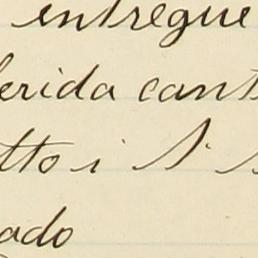 entregue
erida cant
tto i S. s
ado